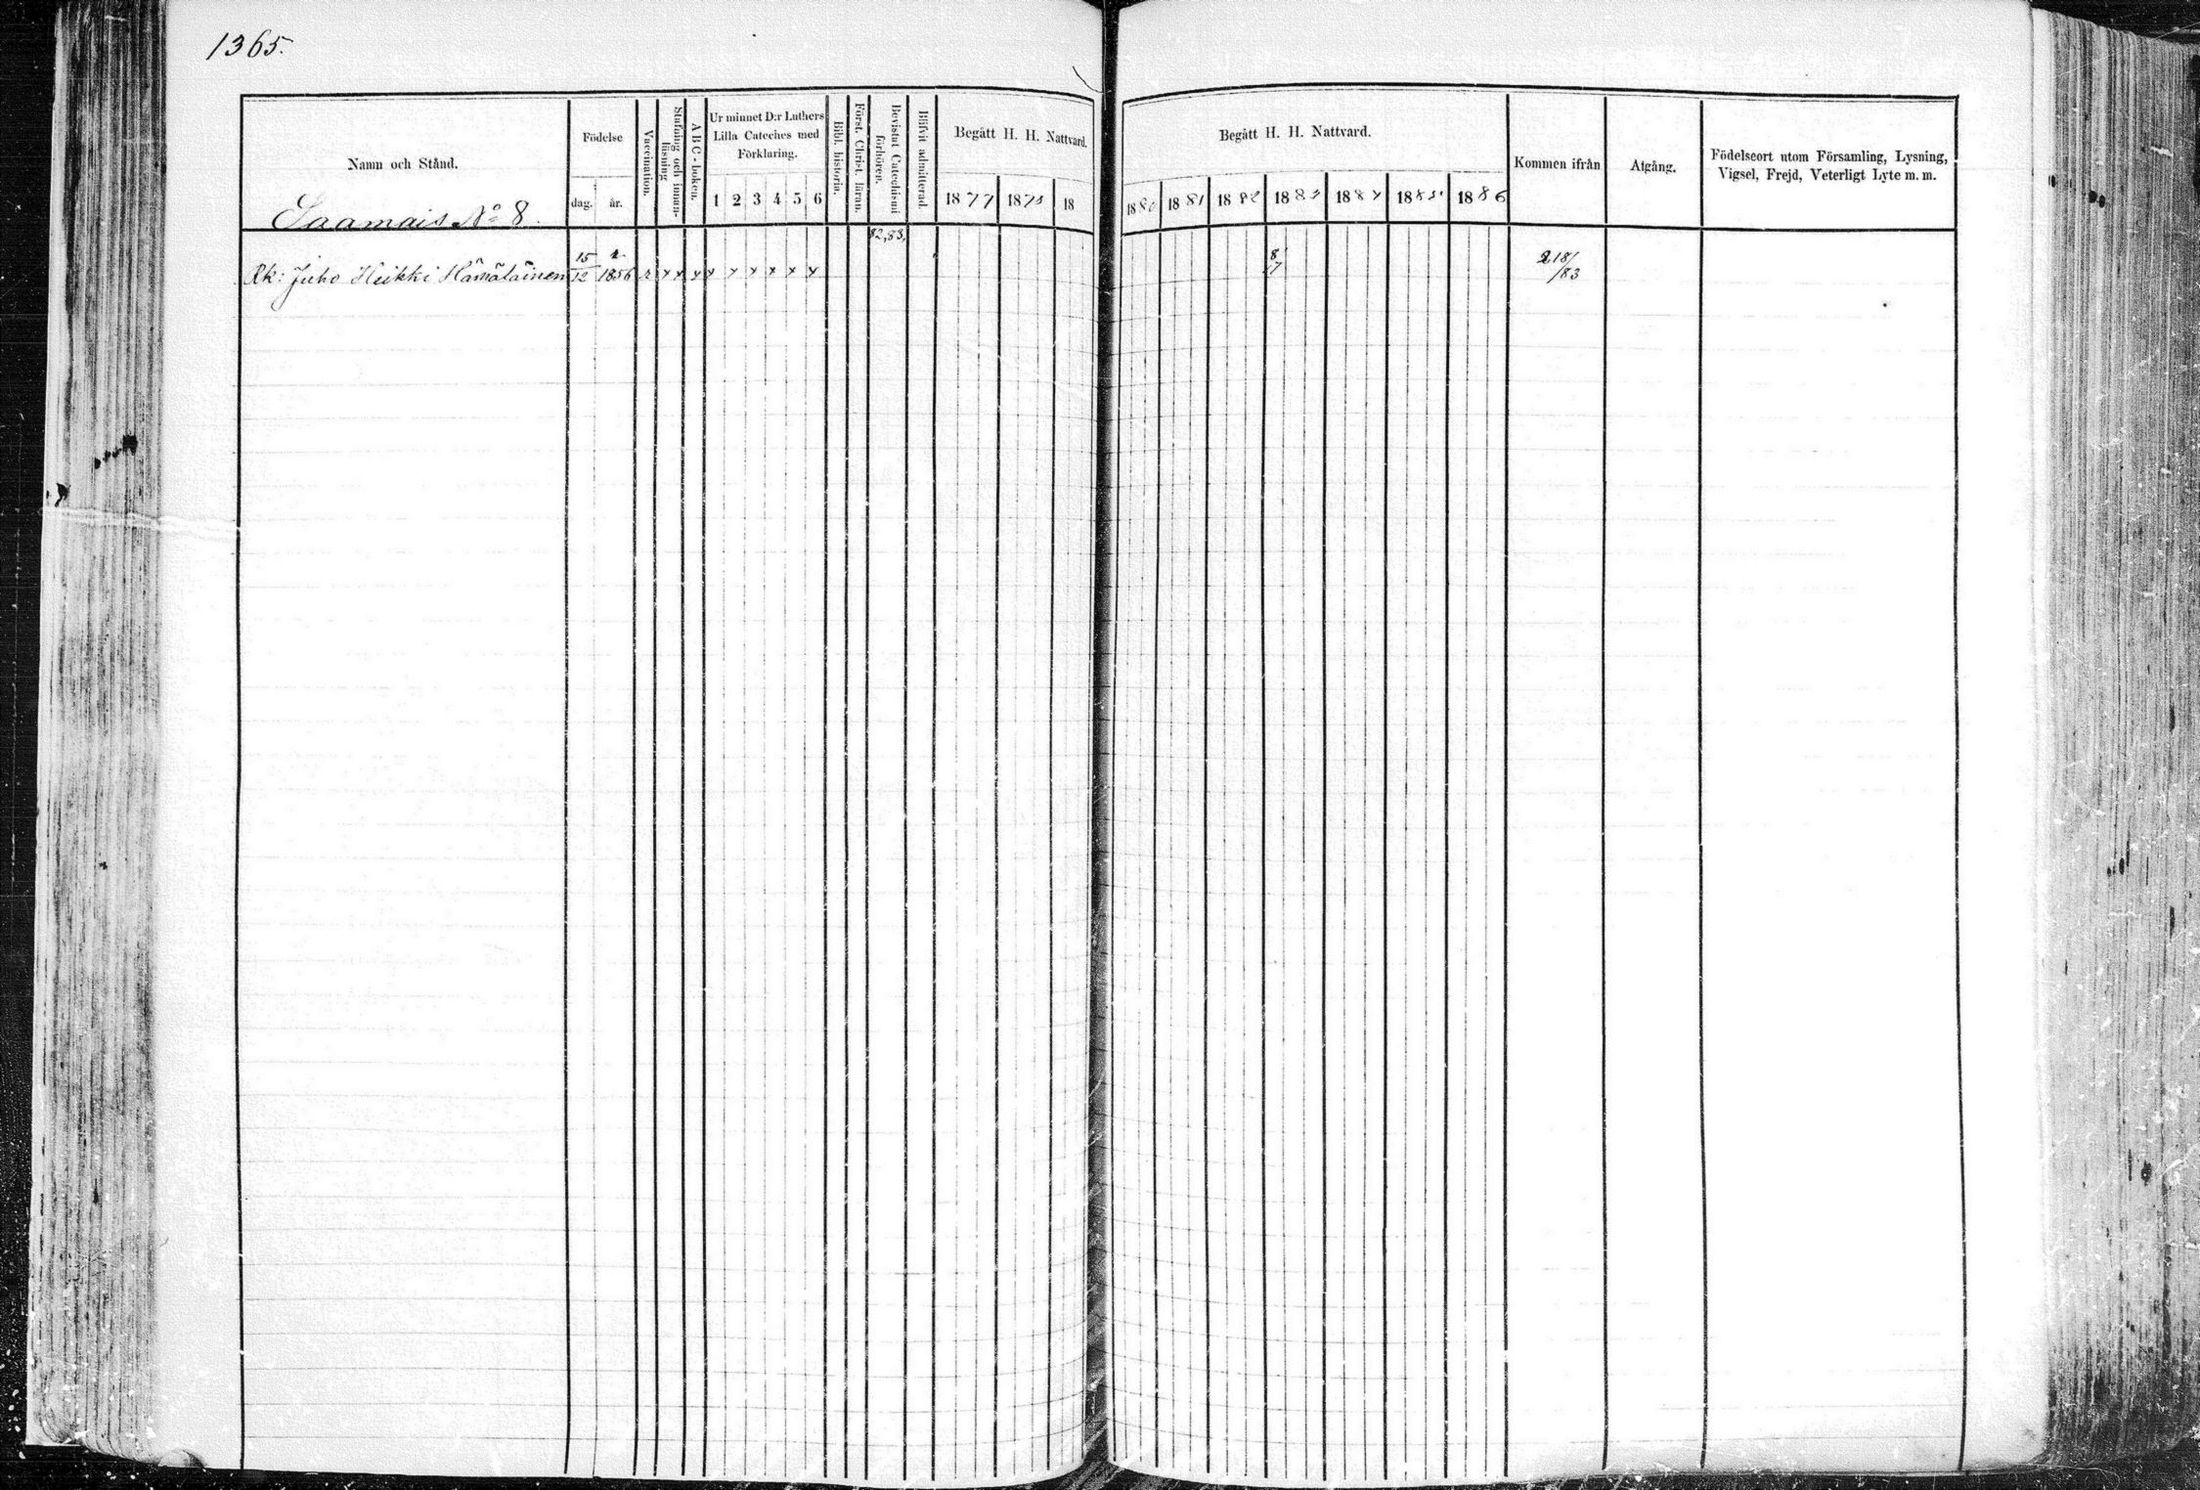 1365.
Namn och Stånd.
Saamais No 8.
Födelse
dag.
år.
Vaccination.
Stafning och innan-
läsning
A B C-boken.
Ur minnet D:r Luthers
Lilla Cateches med
Förklaring.
1 2 3 4 5 6
Bibl. historia.
Först. Christ. läran.
Bevistat Catechismi
förhören.
Blifvit admitterad.
Begått H. H. Nattvard.
1877 1878 18
Begått H. H. Nattvard.
1880 1881 1882 1883 1884 1885 1886
Kommen ifrån
Afgång.
Födelseort utom Församling, Lysning,
Vigsel, Frejd, Veterligt Lyte m. m.
82,83,
Rk: Juho Heikki Hämäläinen 15/12 1856 x x x x x x x x x x
8/7
218/
/83